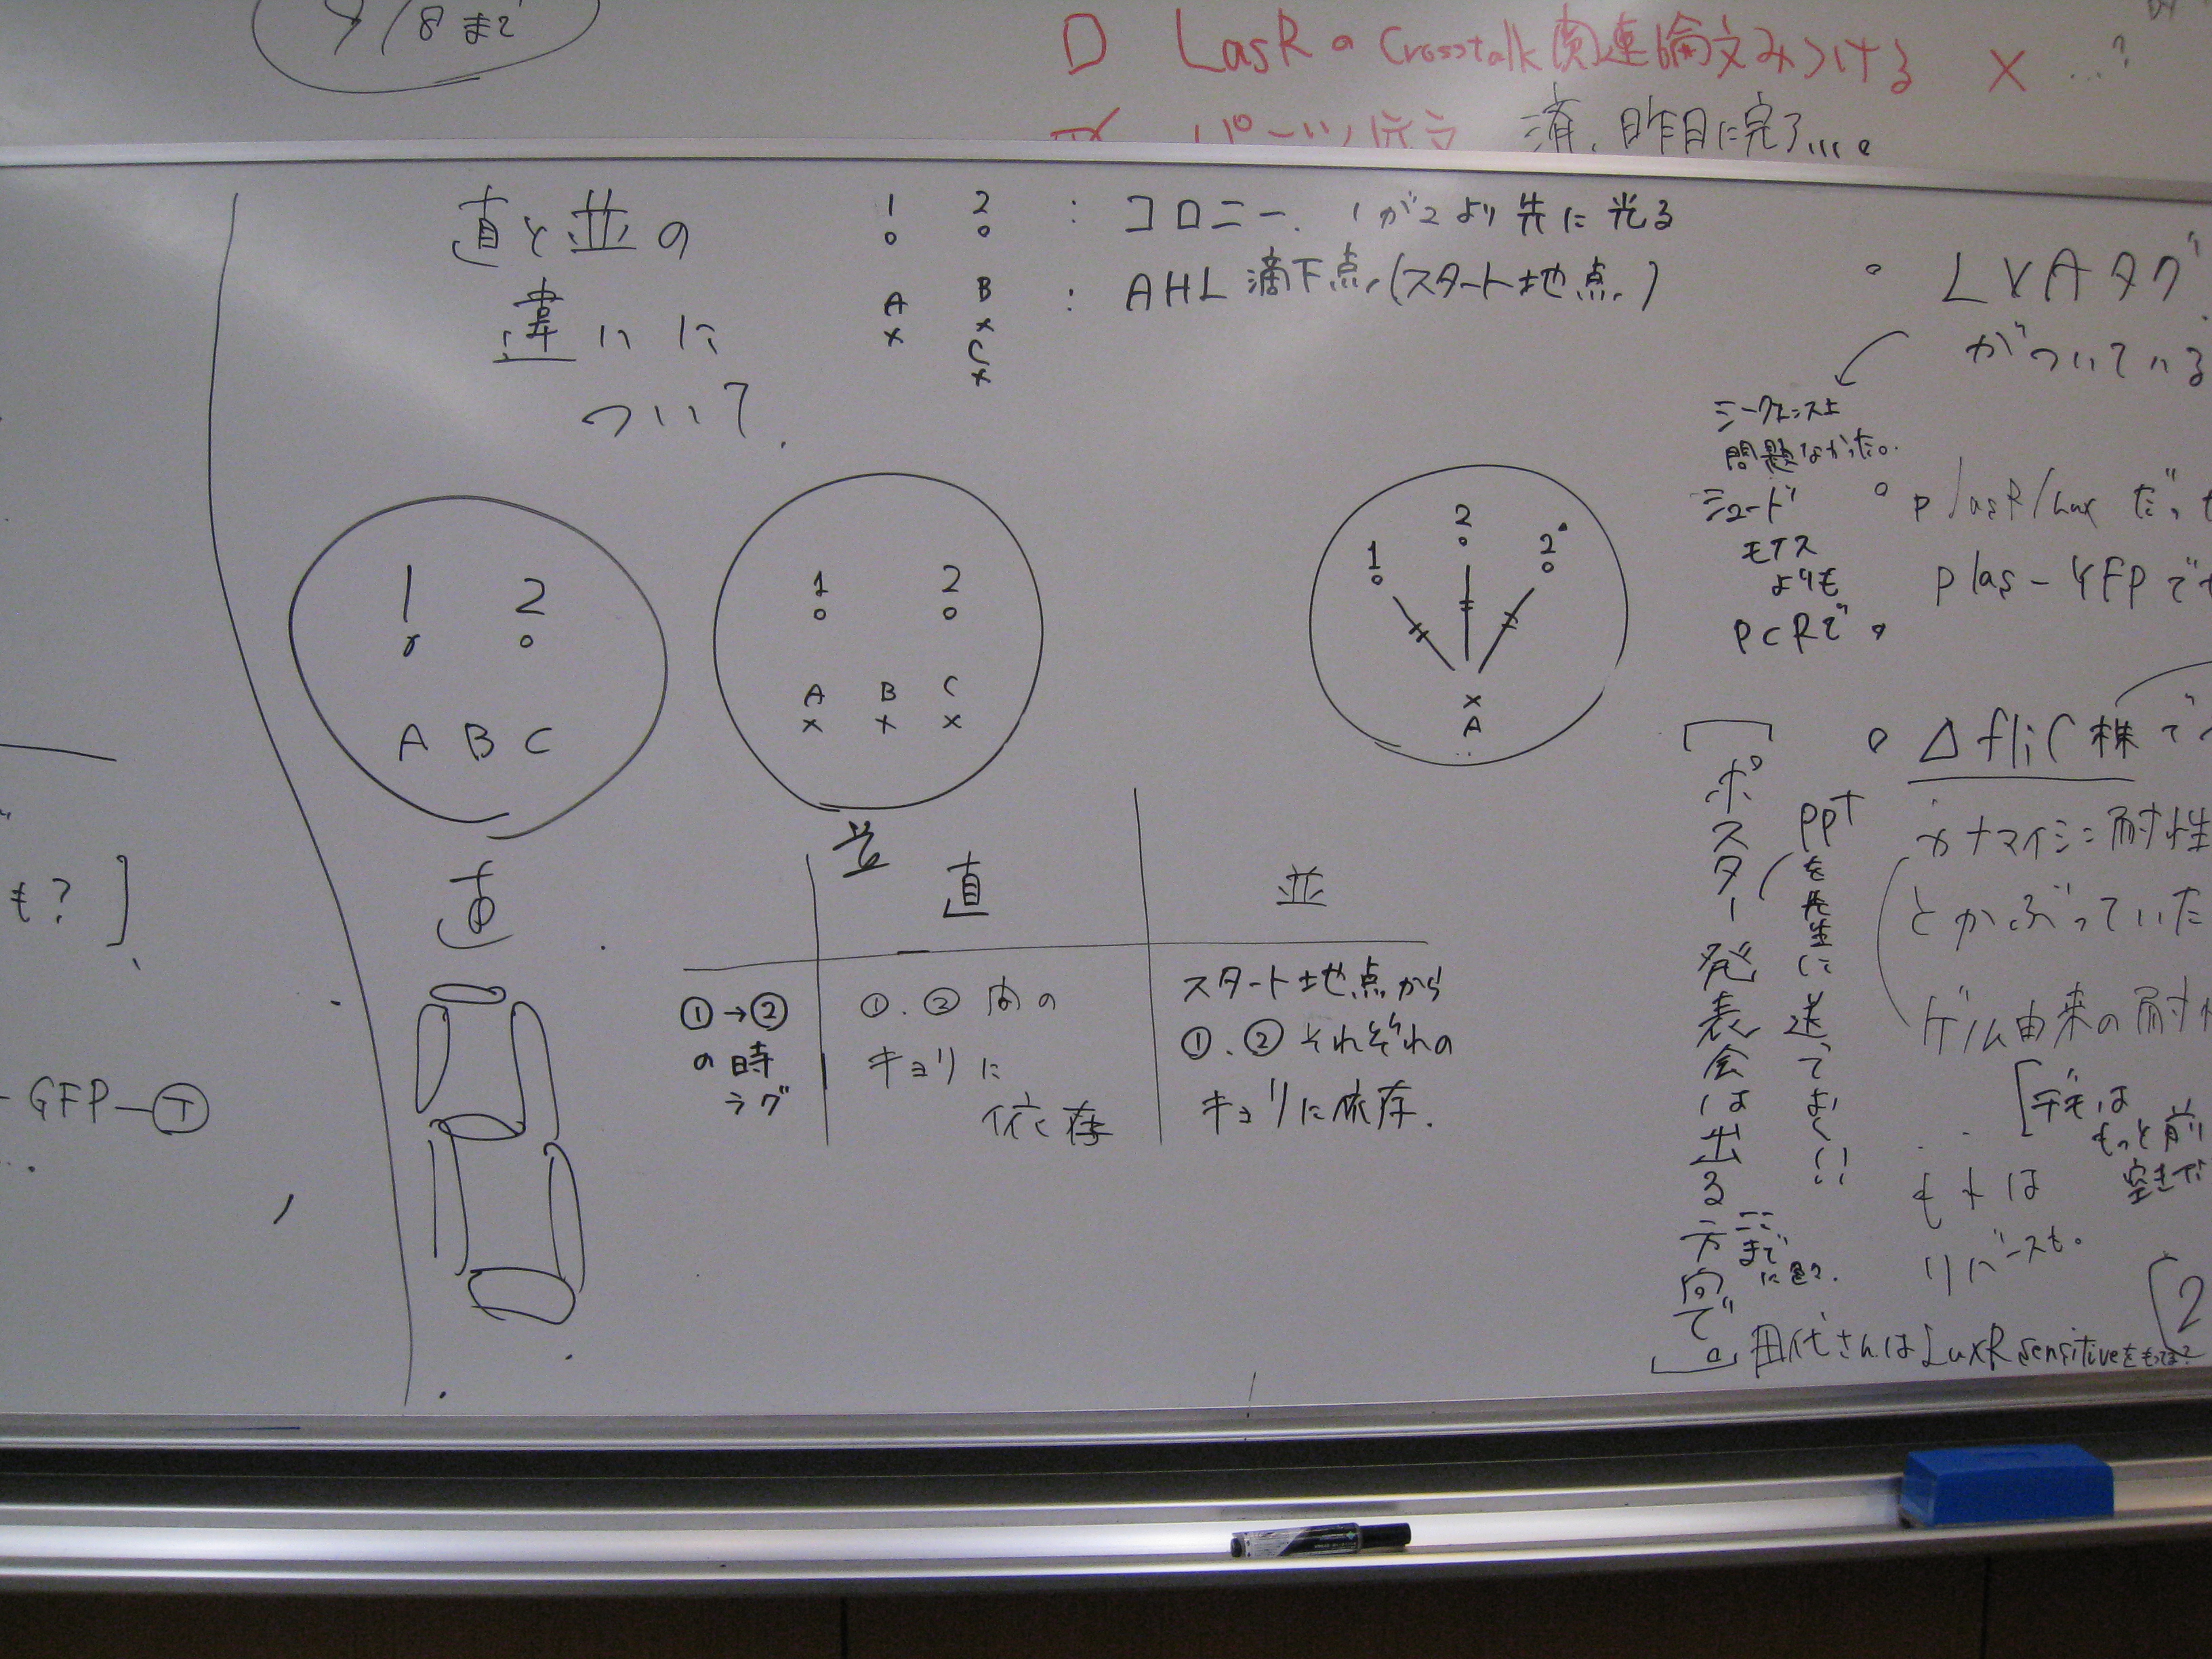 9/8まで
LasRのCrosstalk関連論文みつける × …?
済、昨日に完了....。
直と並の
違いに
ついて.
1 2 : コロニー. 1が2より先に光る
A B : AHL滴下点(スタート地点)
C
1 2
A B C
直
1 2
A B C
並
1 2 2'
A
直 並
①→②
の時
ラグ
①.②間の
キョリに
依存
スタート地点から
①.②それぞれの
キョリに依存.
も?]
GFP-Ⓣ
LVAタグ
がついている
シークエンス上
問題なかった。
シュード
モナス
よりも
PCRで
plasR/lux だっ
plas-YFPで
ΔfliC株で
カナマイシン耐性
とかぶっていた
ゲノム由来の耐
[デモは
もっと前
もとは
リバースも。
[ポスター発表会は出る方向で。]
pptを先生に送ってよく!!
ここまで
[2
田代さんはLuxR sensitiveをもってる?